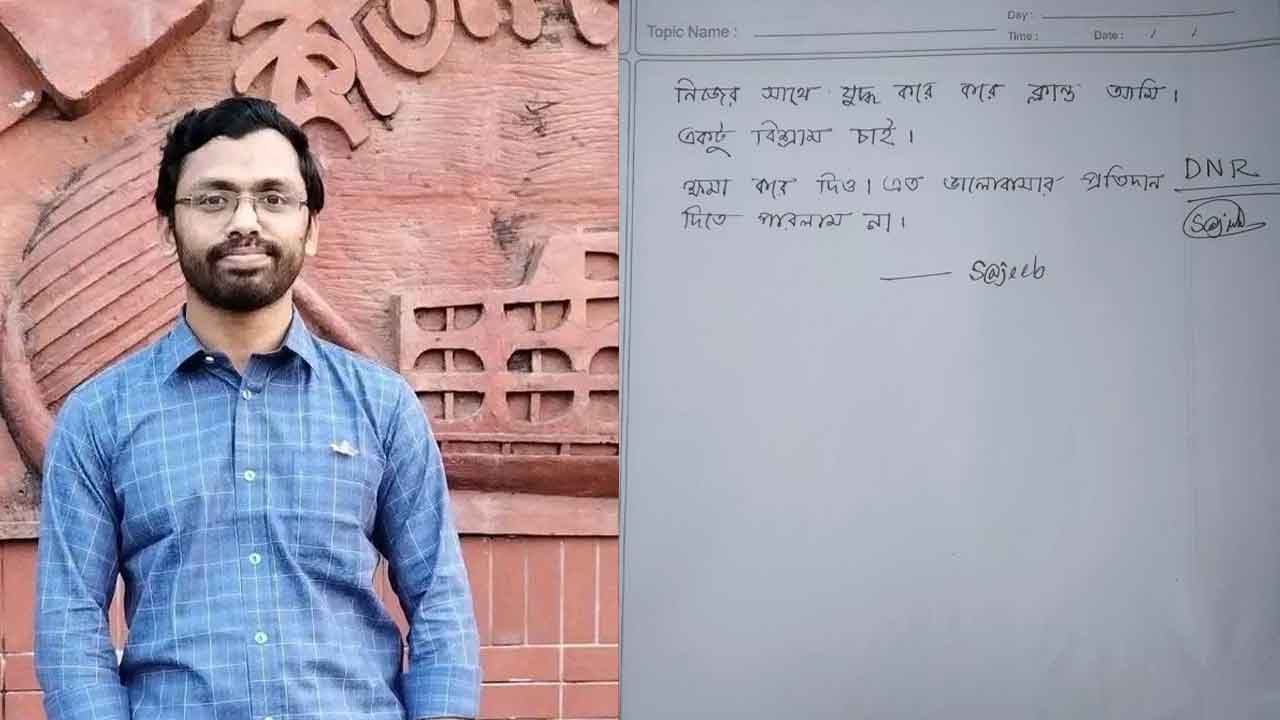 Topic Name :
Day :
Time :
Date : / /
নিজের সাথে যুদ্ধ করে করে ক্লান্ত আমি।
একটু বিশ্রাম চাই।
ক্ষমা করে দিও। এত ভালোবাসার প্রতিদান
দিতে পারলাম না।
DNR
S@jeeb
S@jeeb